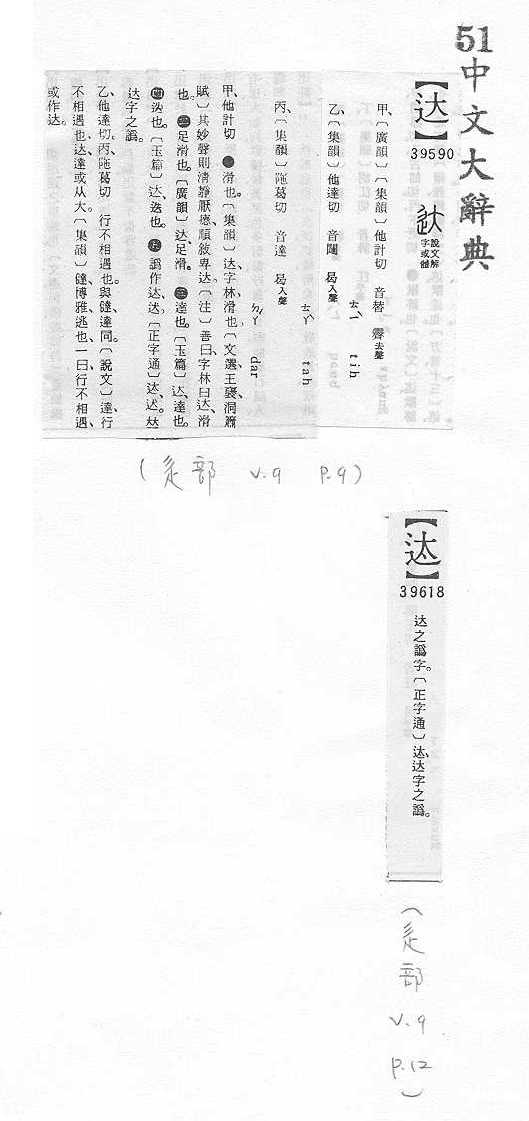 51中文大辭典
【达】
39590
說文解字或體
甲、〔廣韻〕〔集韻〕他計切 音替 霽去聲
ㄊㄧˋ tih
乙、〔集韻〕他達切 音闥 曷入聲
ㄊㄚˋ tah
丙、〔集韻〕陁葛切 音達 曷入聲
ㄉㄚˊ dar
甲、他計切 ●滑也。〔集韻〕达、字林、滑也。〔文選、王襃、洞簫
賦〕其妙聲則清靜厭㥷、順敘卑达。〔注〕善曰、字林曰、达、滑
也。㊁足滑也。〔廣韻〕达、足滑。㊂達也。〔玉篇〕达、達也。
㊃迭也。〔玉篇〕达、迭也。㊄譌作迖、迏。〔正字通〕迖、迏、
达字之譌。
乙、他達切、丙、陁葛切 行不相遇也。與㒓、達同。〔說文〕達、行
不相遇也、达、達或从大。〔集韻〕㒓、博雅、逃也、一曰、行不相遇、
或作达。
(辵部 v.9 p.9)
【迖】
39618
达之譌字。〔正字通〕迖、达字之譌。
(辵部 v.9 p.12)